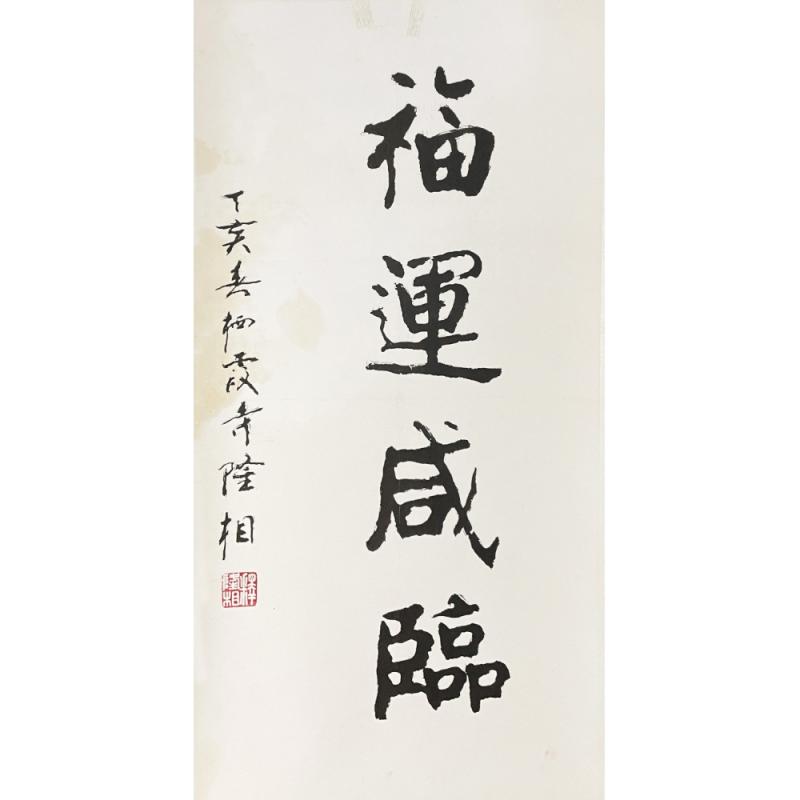 福運咸臨
丁亥春栖霞寺隆相
釋隆相